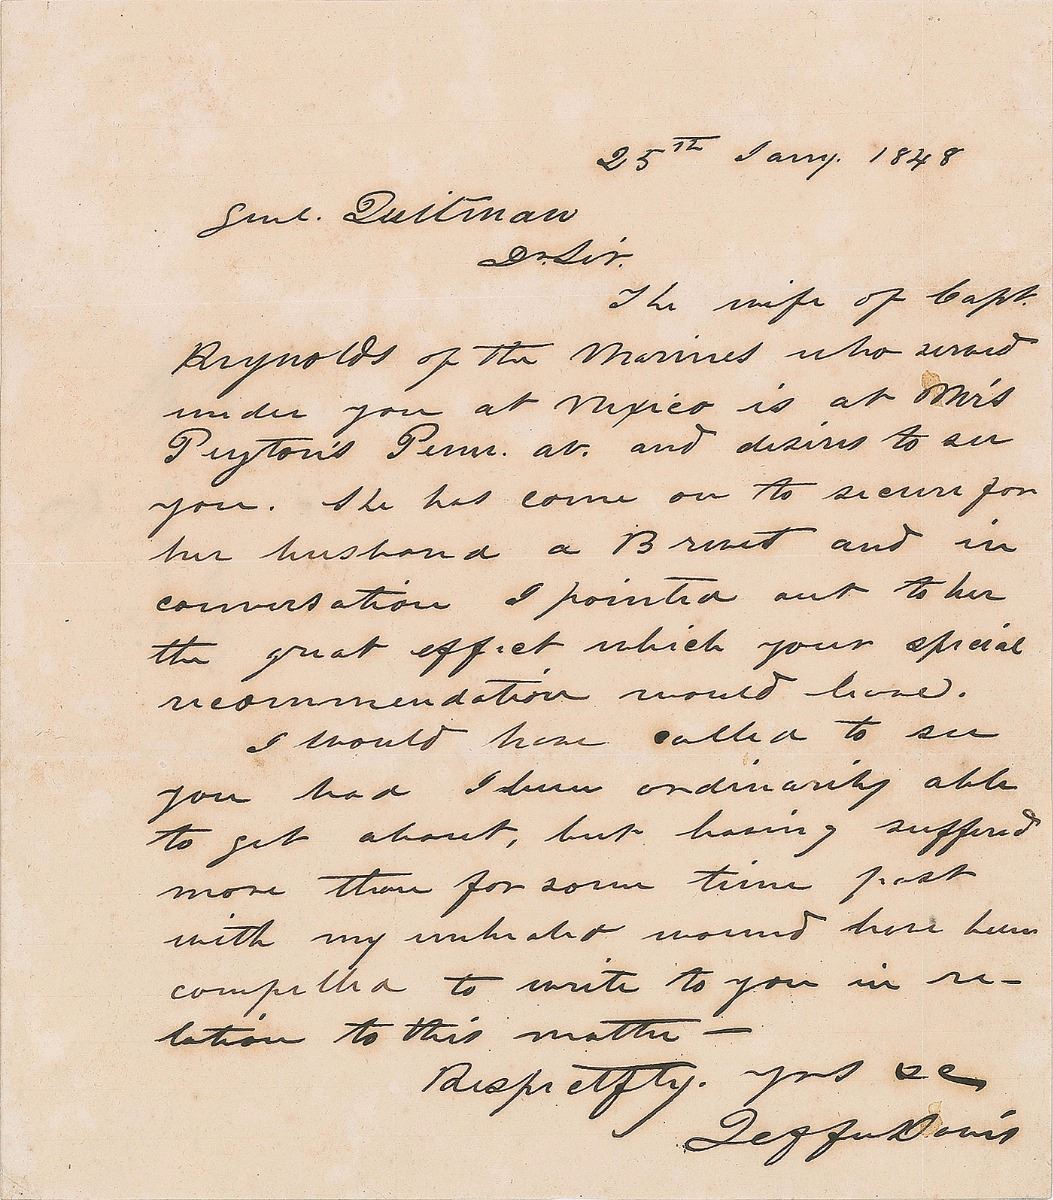 25th Jany. 1848
Genl. Quitman
Dr. Sir.
The wife of Capt.
Reynolds of the Marines who served
under you at Mexico is at Mrs
Peyton's Penn. av. and desires to see
you. She has come on to secure for
her husband a Brevet and in
conversation I pointed out to her
the great effect which your special
recommendation would have.
I would have called to see
you had I been ordinarily able
to get about, but having suffered
more than for some time past
with my unhealed wound have been
compelled to write to you in re-
lation to this matter —
Respectfly. yrs &c
Jeffn Davis